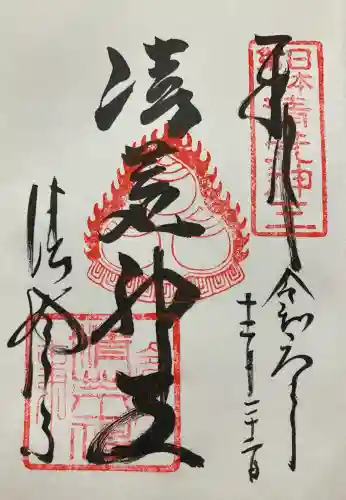 奉拝
令和 年
十二月二十二日
日本清荒神王
清荒神王
清澄寺